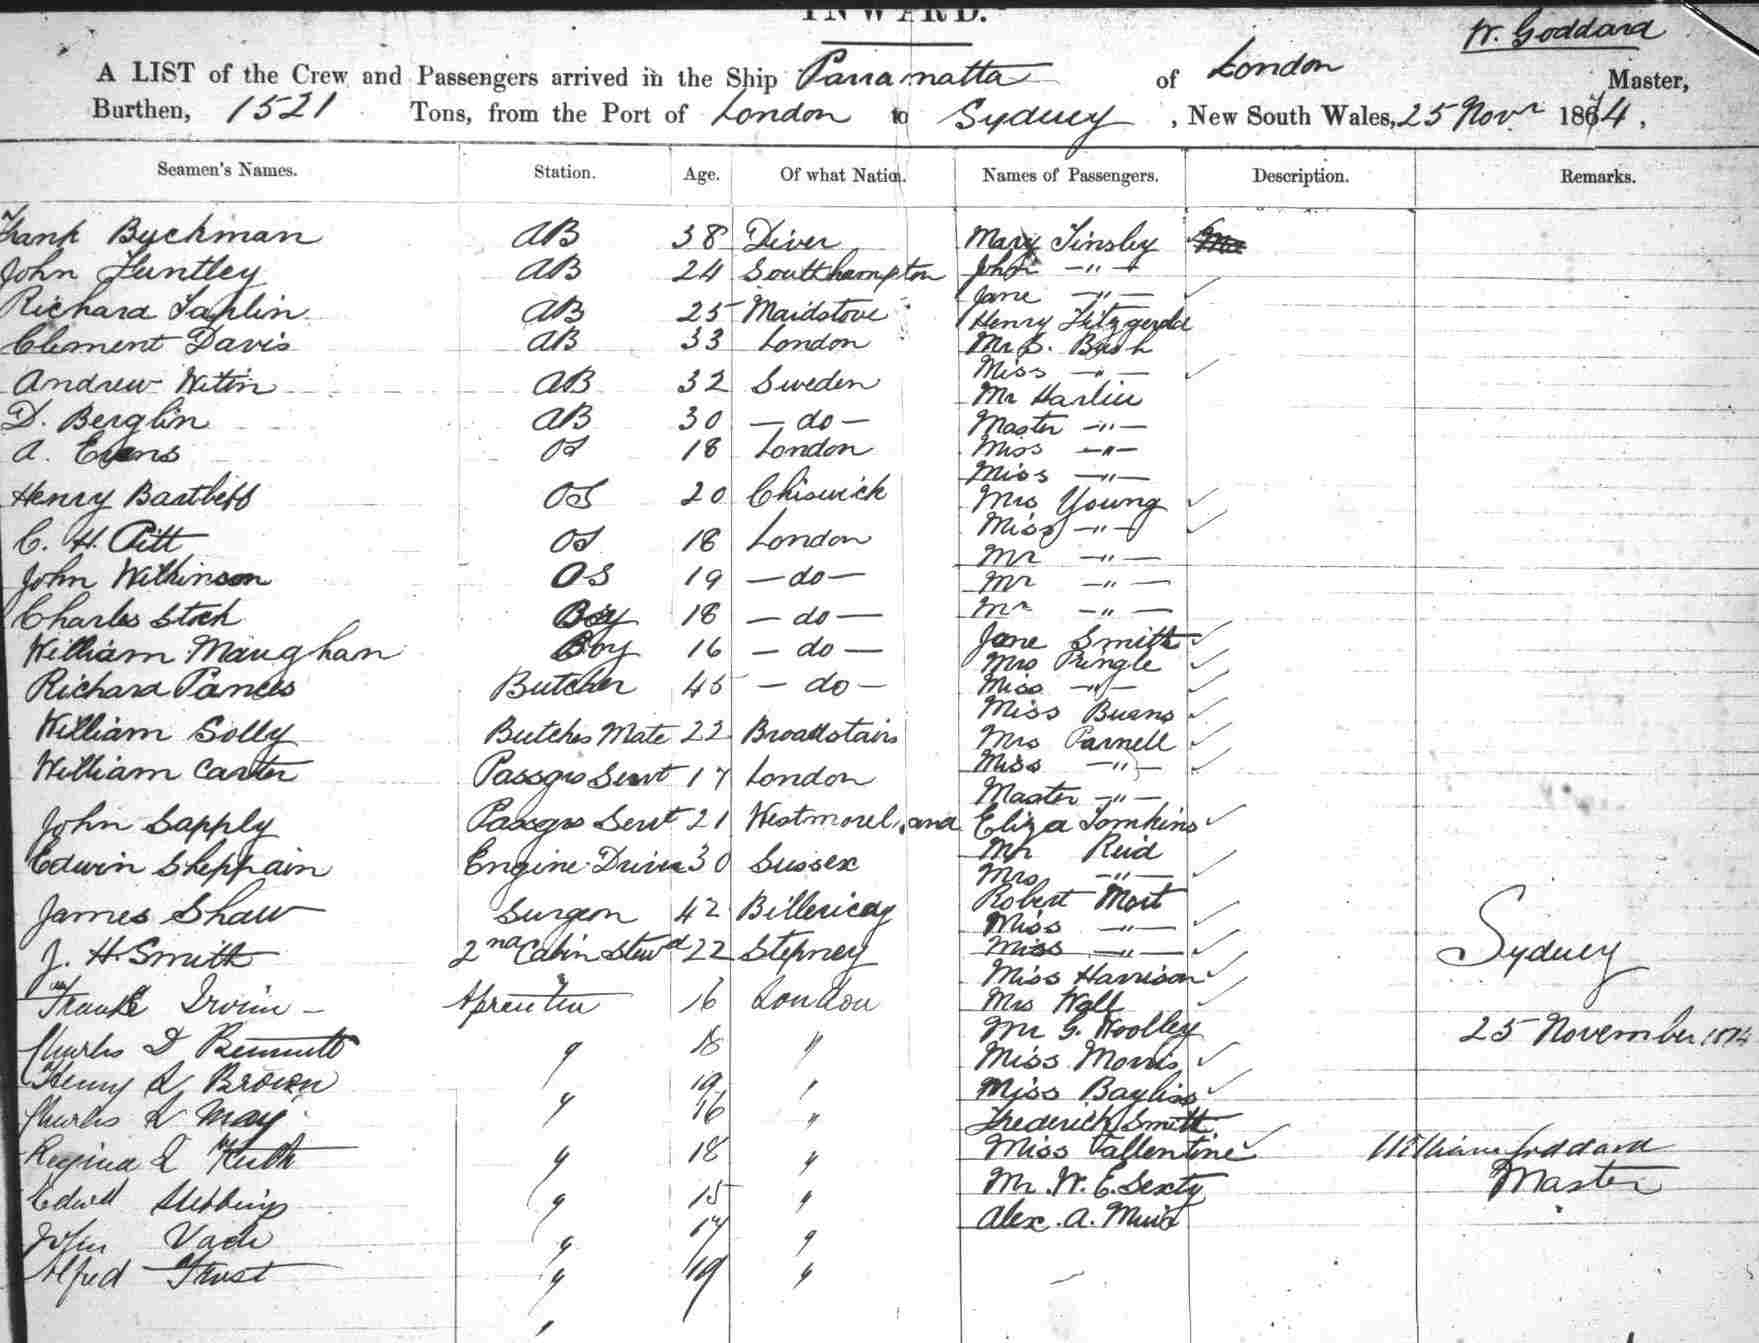 INWARD.
W. Goddard
A LIST of the Crew and Passengers arrived in the Ship Parramatta of London Master,
Burthen, 1521 Tons, from the Port of London to Sydney, New South Wales, 25 Novr 1874,
Seamen's Names. Station. Age. Of what Nation. Names of Passengers. Description. Remarks.
Frank Buckman AB 38 Diver Mary Tinsley
John Huntley AB 24 Southampton John -"-
Jane -"-
Richard Taplin AB 25 Maidstone Henry Fitzgerald
Clement Davis AB 33 London Mr S. Bush
Miss -"-
Andrew AB 32 Sweden Mr Harlin
D. Berglin AB 30 -do- Master -"-
A. Evans OS 18 London Miss -"-
Miss -"-
Henry Bartlett OS 20 Chiswick Mrs Young
Miss -"-
C. H. Pitt OS 18 London Mr -"-
John Wilkinson OS 19 -do- Mr -"-
Charles Stock Boy 18 -do- Mr -"-
Jane Smith
William Maugham Boy 16 -do- Mrs Pringle
Richard Butcher 45 -do- Miss -"-
Miss Burns
William Solly Butchers Mate 22 Broadstairs Mrs Parnell
William Carter Passgrs Servt 17 London Miss -"-
Master -"-
John Sapply Passgrs Servt 21 Westmoreland Eliza Tomkins
Edwin Sheppain Engine Driver 30 Sussex Mr Reid
Mrs -"-
James Shaw Surgeon 42 Billericay Robert Mort
Miss -"-
J. H. Smith 2nd Cabin Stewd 22 Stepney Miss -"-
Sydney
Miss Harrison
Frank Irvin - Aprentice 16 London Mrs Wall
Mr G. Woolley
25 November 1874
Charles D Bennett " 18 " Miss Morris
Henry L Brown " 19 " Miss Bayliss
Charles L May " 16 " Frederick Smith
Regina L Keith " 18 " Miss Vallentine
William Goddard
Master
Edwd Stebbings " 15 " Mr. W. E. Sexty
John " 17 " Alex. A. Muir
Alfred Trust " 19 "